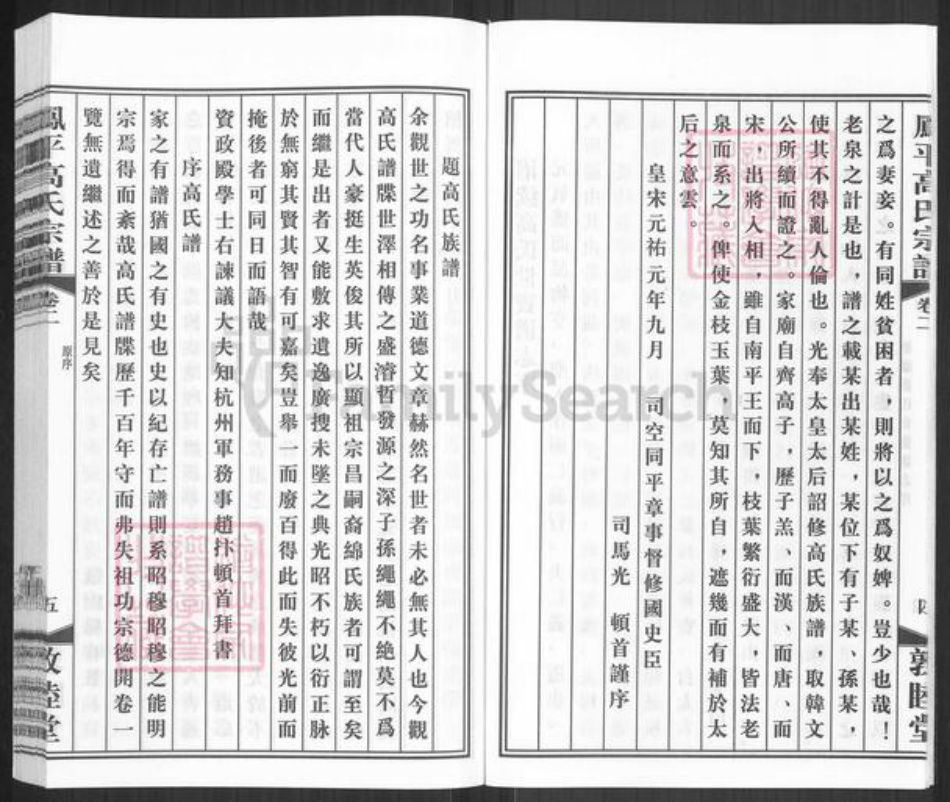 鳳平高氏宗譜 卷二 四 敦睦堂
之爲妻妾。有同姓貧困者，則將以之爲奴婢。豈少也哉！
老泉之計是也，譜之載某出某姓，某位下有子某、孫某，
使其不得亂人倫也。光奉太皇太后詔修高氏族譜，取韓文
公所續而證之。家廟自齊高子，歷子羔、而漢、而唐、而
宋，出將入相，雖自南平王而下，枝葉繁衍盛大，皆法老
泉而系之。俾使金枝玉葉，莫知其所自，遮幾而有補於太
后之意雲。
皇宋元祐元年九月 司空同平章事督修國史臣
司馬光 頓首謹序
題高氏族譜
余觀世之功名事業道德文章赫然名世者未必無其人也今觀
高氏譜牒世澤相傳之盛濬哲發源之深子孫繩繩不絶莫不爲
當代人豪挺生英俊其所以顯祖宗昌嗣裔綿氏族者可謂至矣
而繼是出者又能敷求遺逸廣搜未墜之典光昭不朽以衍正脉
於無窮其賢其智有可嘉矣豈舉一而廢百得此而失彼光前而
掩後者可同日而語哉
資政殿學士右諫議大夫知杭州軍務事趙抃頓首拜書
序高氏譜
家之有譜猶國之有史也史以紀存亡譜則系昭穆昭穆之能明
宗焉得而紊哉高氏譜牒歷千百年守而弗失祖功宗德開卷一
覽無遺繼述之善於是見矣
鳳平高氏宗譜 卷二 原序 五 敦睦堂
FamilySearch